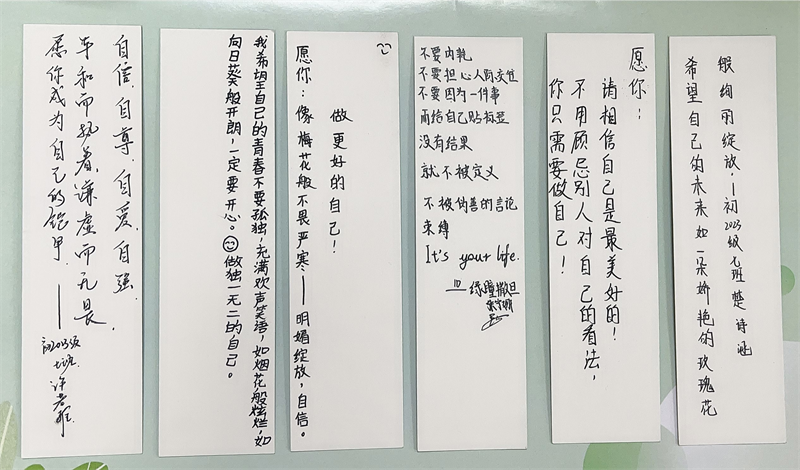 自信.自尊.自爱.自强.
平和而执着,谦虚而无畏.
愿你成为自己的铠甲.——
初2023级
七班
我希望自己的青春不要孤独,充满欢声笑语,如烟花般灿烂,如
向日葵般开朗,一定要开心。做独一无二的自己。
愿你:像梅花般不畏严寒——明媚绽放,自信。
做更好的自己!
不要内耗
不要担心人际交往
不要因为一件事
而给自己贴标签
没有结果
就不被定义
不被伪善的言论
束缚
It's your life.
——绿瞳撒旦
愿你:
请相信自己是最美好的!
不用顾忌别人对自己的看法,
你只需要做自己!
希望自己的未来如一朵娇艳的玫瑰花
般绚丽绽放.—初2023级七班楚诗涵